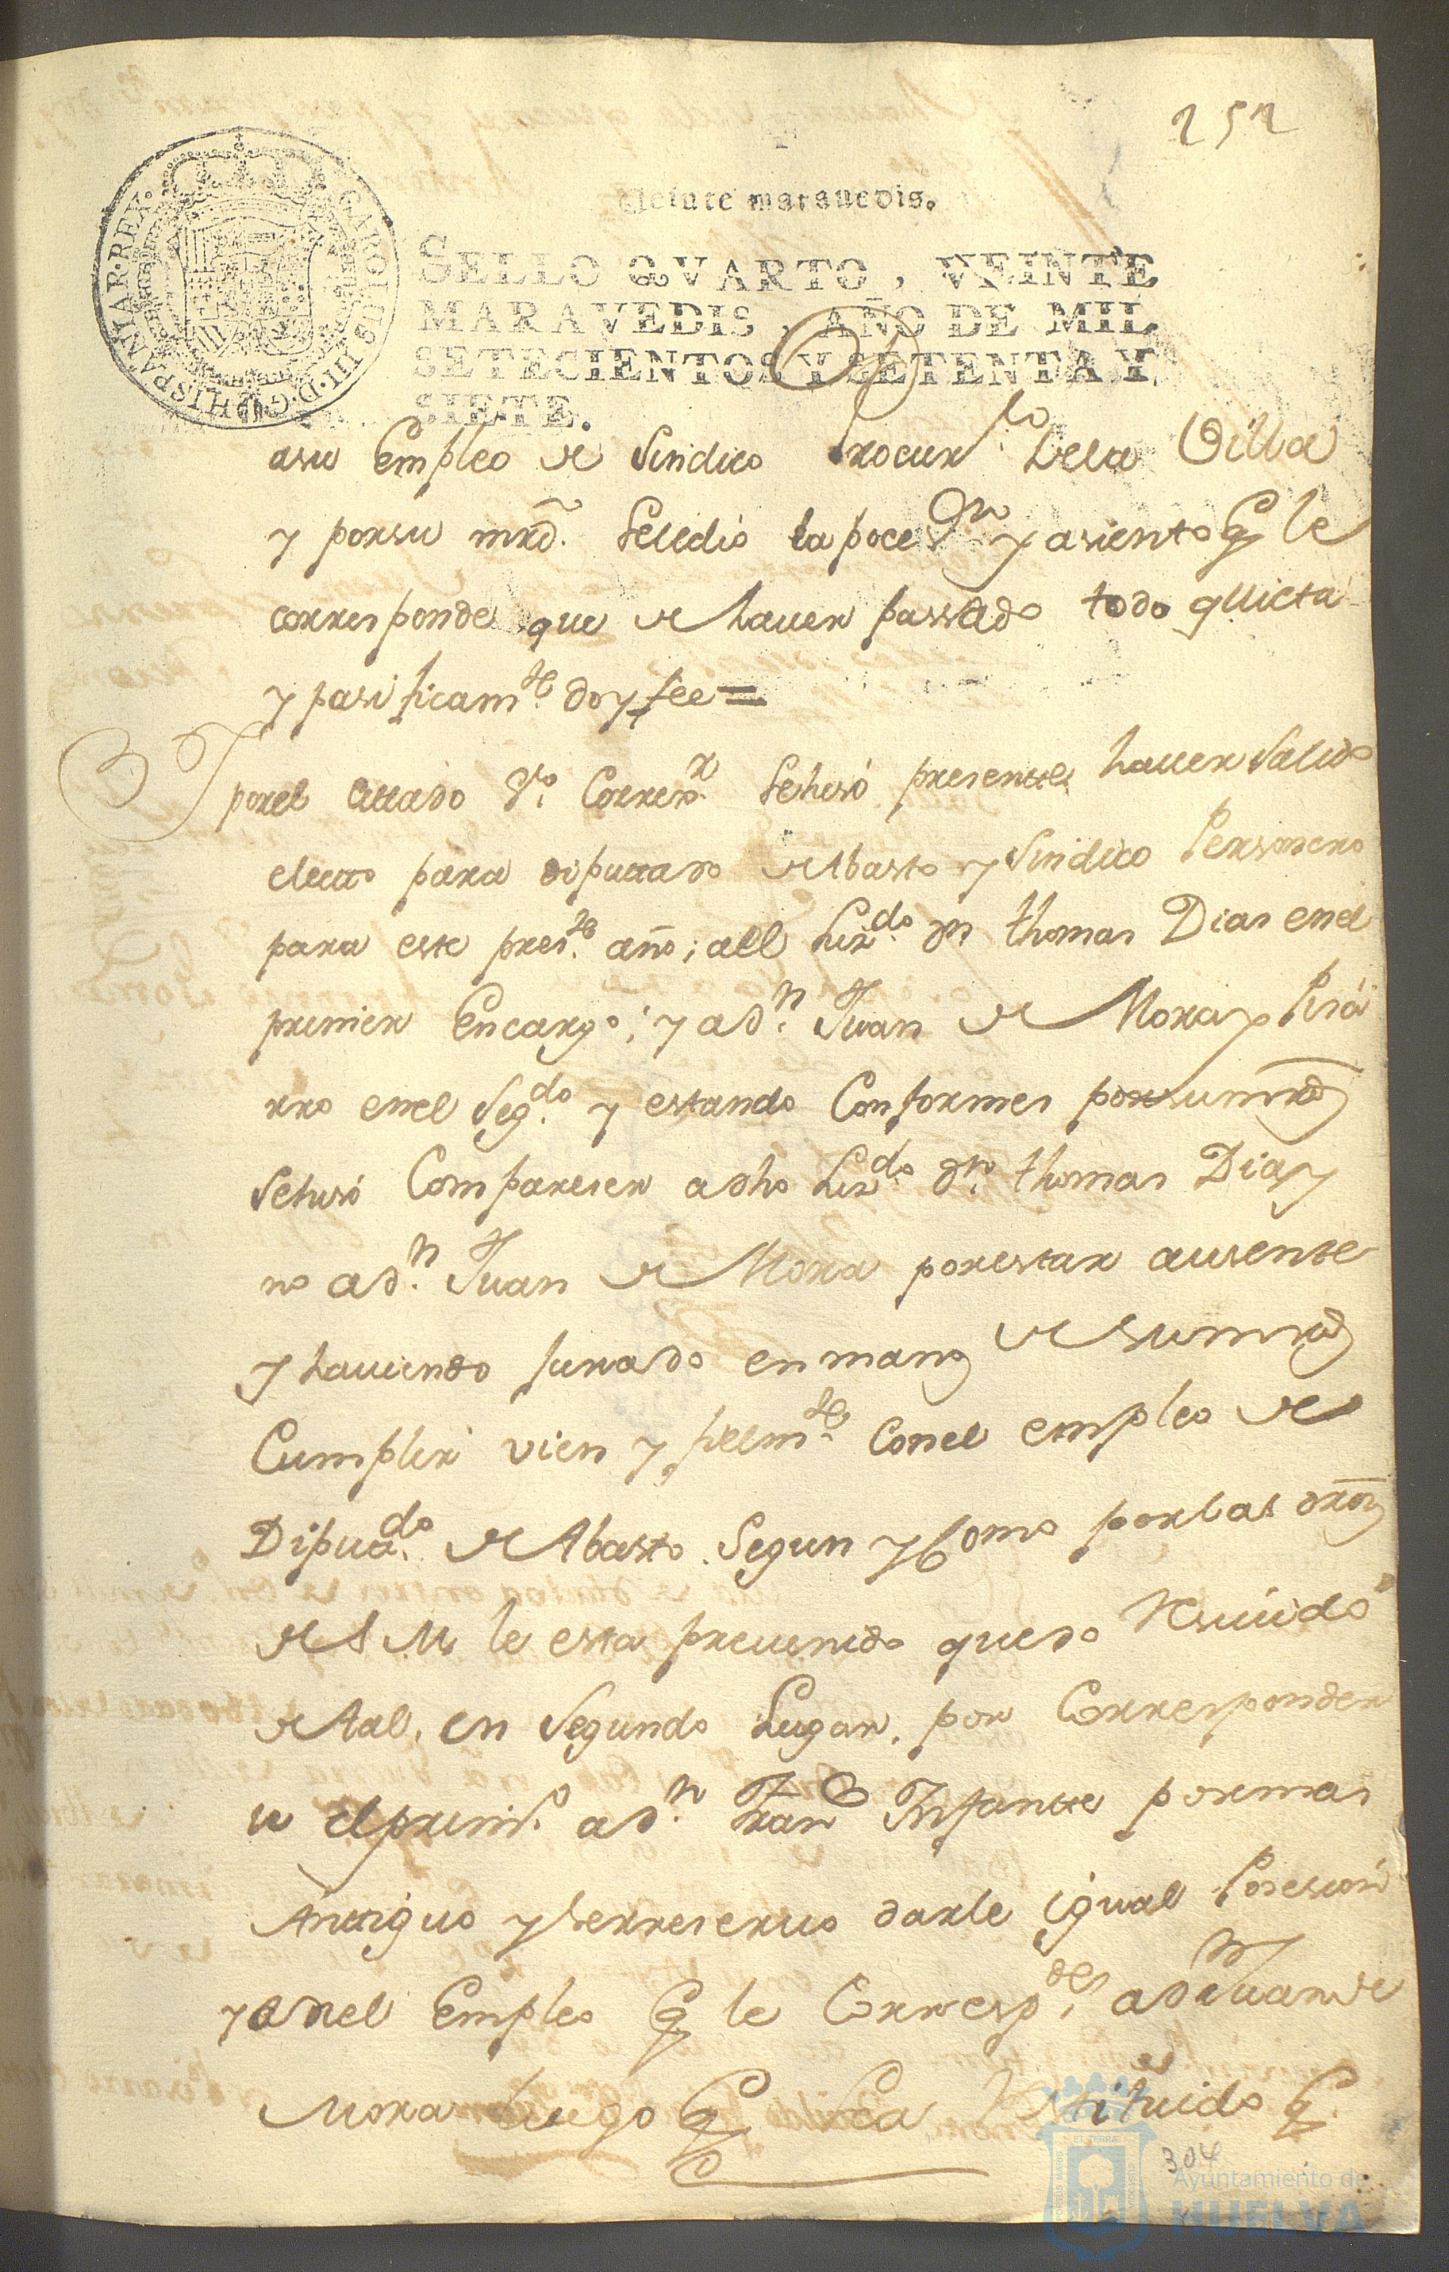 252
Veinte maravedis.
SELLO QVARTO, VEINTE
MARAVEDIS, AÑO DE MIL
SETECIENTOS Y SETENTA Y
SIETE.
CAROLUS III D G HISPANIAR REX
asu Empleo de Sindico Procur.or dela Villa
y porsu mrd. Seledio la poce.on y asiento q le
corresponde que de haver passado todo quieta
y pasificam.te doy fee =
Y porel Cittado S.r Correx.r Sehisó presentte haver Salido
electo para diputtado de Abasto y Sindico Personero
para este pres.te año; all Liz.do Dn thomas Dias enel
primer Encargo; y a D.n Juan de Mora y Piza
rro enel Seg.do y estando Conformes porsumrd
Sehisó Compareser adho Liz.do Dn thomas Dias y
no a D.n Juan de Mora porestar ausente
y haviendo Jurado enmanos de sumrd
Cumplir vien y fielm.te Conel empleo de
Dipu.do de Abasto Segun y Como porlas orns
de S M le esta prevenido quedo Resiuido
de tal, en Segundo Lugar, por Corresponder
le elprim.o a D.n Fran.co Infantte pormas
Anttiguo y serreservo darle igual Posesion
y enel Empleo q le Corresp.de a D.n Juan de
Mora luego q Sea Restituido q
304
Ayuntamiento de
HUELVA